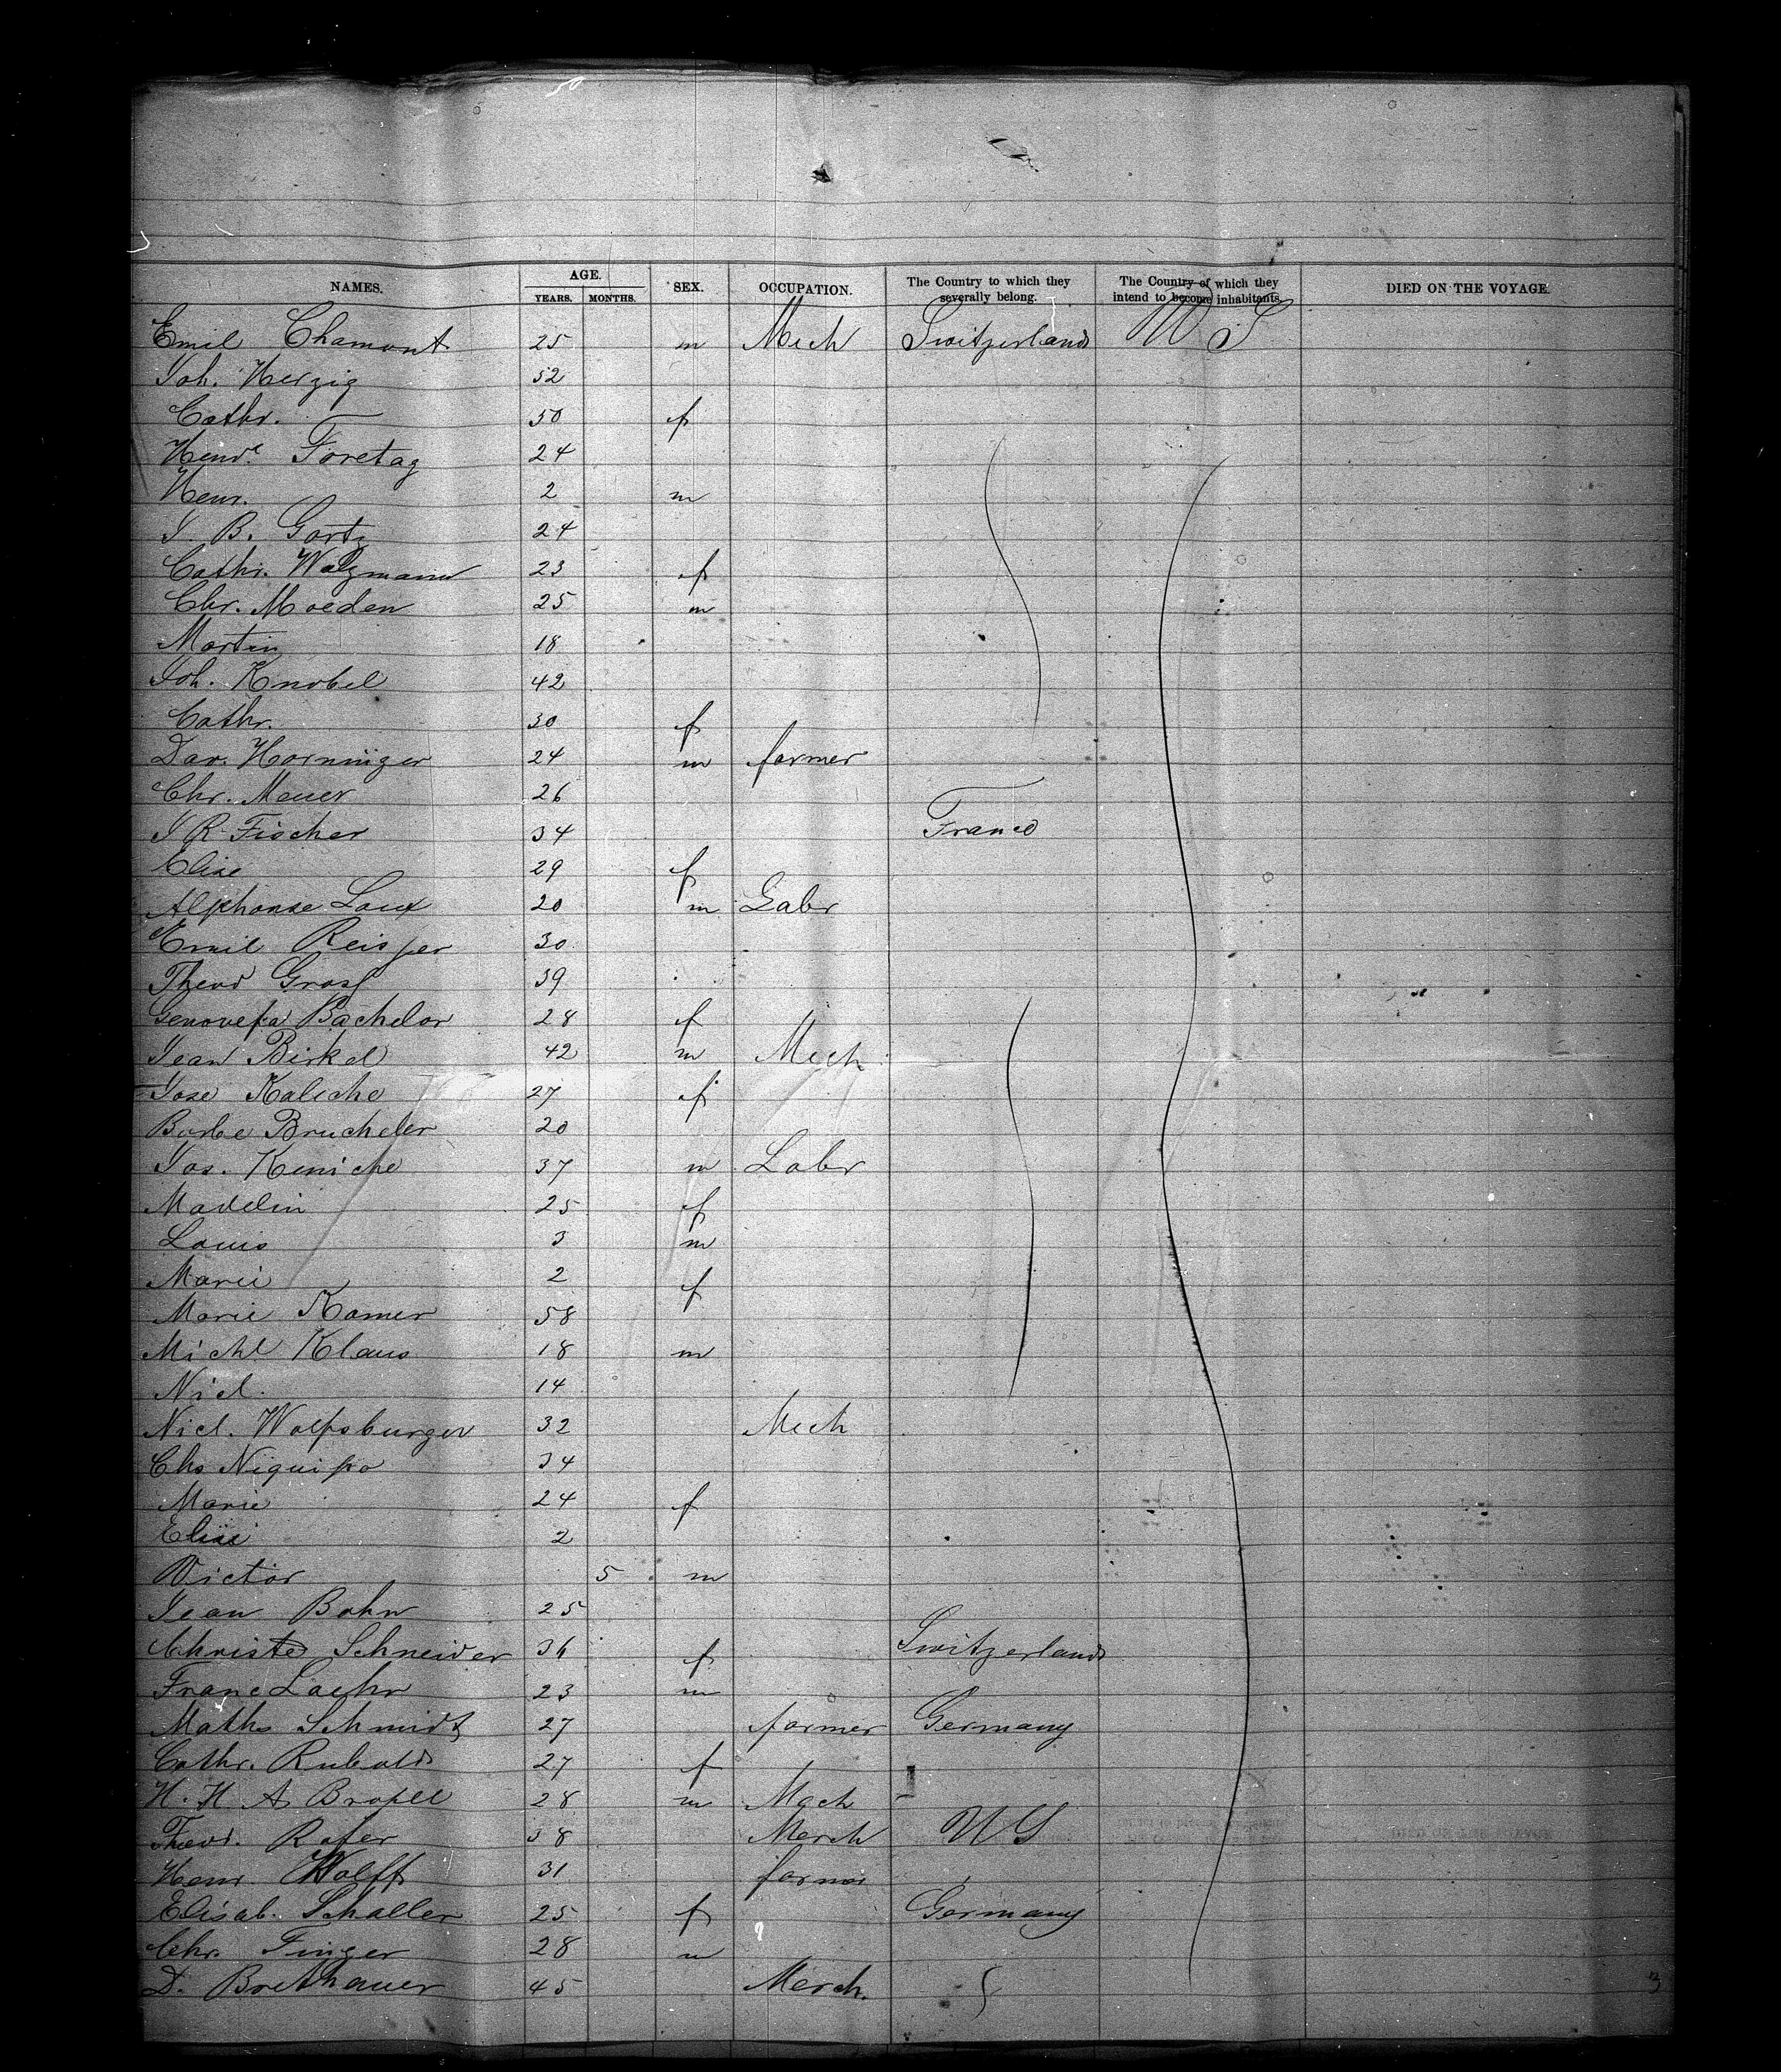 50
NAMES. AGE. YEARS. MONTHS. SEX. OCCUPATION. The Country to which they severally belong. The Country of which they intend to become inhabitants. DIED ON THE VOYAGE.
Emil Chamont 25 m Mech Switzerland U S
Joh. Herzig 52
Cathr. 50 f
Henr. Foretag 24
Henr. 2 m
J. B. Gortz 24
Cathr. Walzmann 23 f
Chr. Moeden 25 m
Martin 18
Joh. Knobel 42
Cathr. 30 f
Dav. Horninger 24 m farmer
Chr. Meuer 26
J R Fischer 34 France
Elise 29 f
Alphonse Loux 20 m Labr
Emil Reisser 30
Theod Gross 39
Genovefa Bachelor 28 f
Jean Birkel 42 m Mech
Jose Kaliche 27 f
Barbe Brucheler 20
Jos. Keniche 37 m Labr
Madelin 25 f
Louis 3 m
Marie 2 f
Marie Kamer 58
Michl Klaus 18 m
Nicl. 14
Nicl. Wolfsburger 32 Mech
Chs Niquisso 34
Marie 24 f
Elise 2
Victor 5 m
Jean Bohn 25
Christe Schneider 36 f Switzerland
Franc Laehr 23 m
Maths Schmidt 27 farmer Germany
Cathr. Rubold 27 f
H. H. A 28 m Mech
Theod. Rofer 38 Merch U S
Henr Wolff 31 farmer
Elisab. Schaller 25 f Germany
Chr. Finger 28 m
D. Brethauer 45 Merch.
3